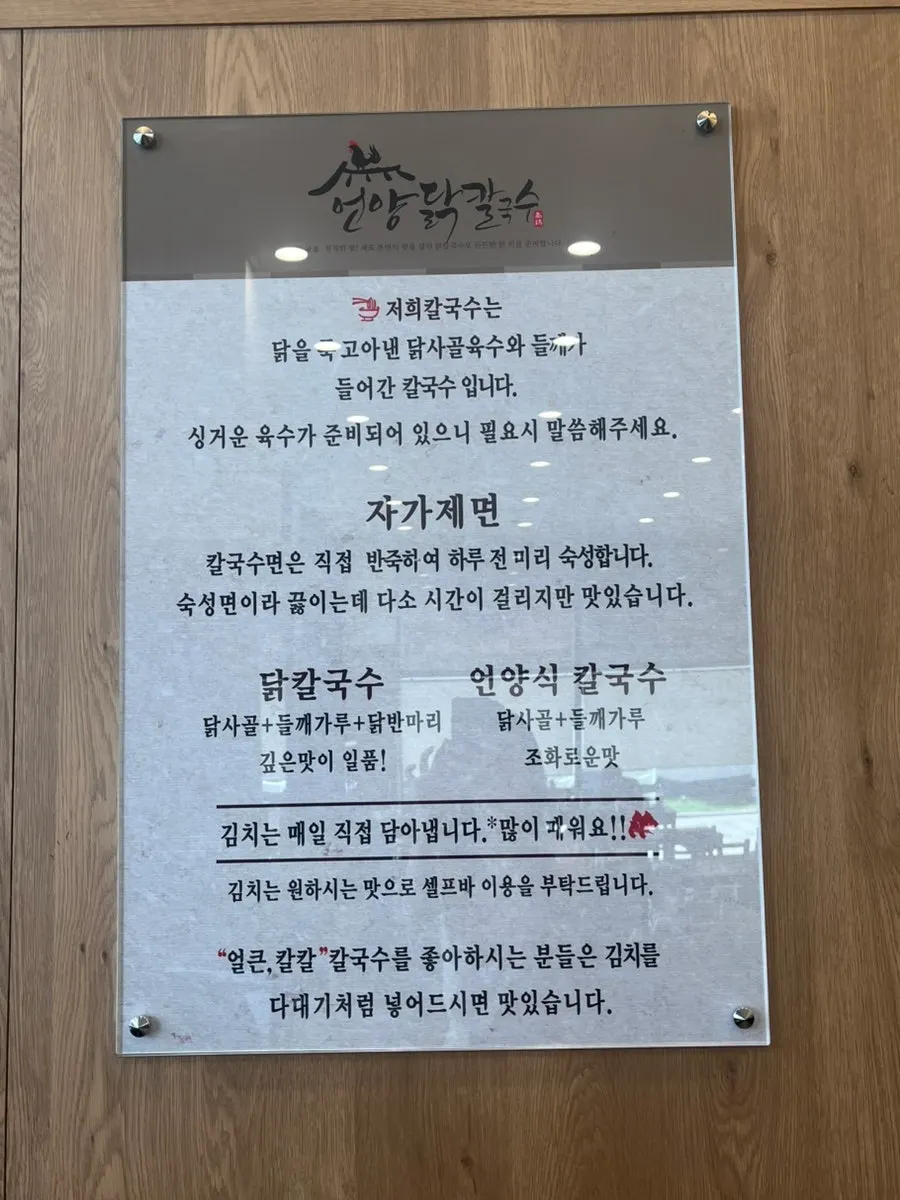 언양닭칼국수
저희칼국수는
닭을 푹 고아낸 닭사골육수와 들깨가
들어간 칼국수 입니다.
싱거운 육수가 준비되어 있으니 필요시 말씀해주세요.
자가제면
칼국수면은 직접 반죽하여 하루 전 미리 숙성합니다.
숙성면이라 끓이는데 다소 시간이 걸리지만 맛있습니다.
닭칼국수
닭사골+들깨가루+닭반마리
깊은맛이 일품!
언양식 칼국수
닭사골+들깨가루
조화로운맛
김치는 매일 직접 담아냅니다.*많이 매워요!!
김치는 원하시는 맛으로 셀프바 이용을 부탁드립니다.
"얼큰,칼칼"칼국수를 좋아하시는 분들은 김치를
다대기처럼 넣어드시면 맛있습니다.